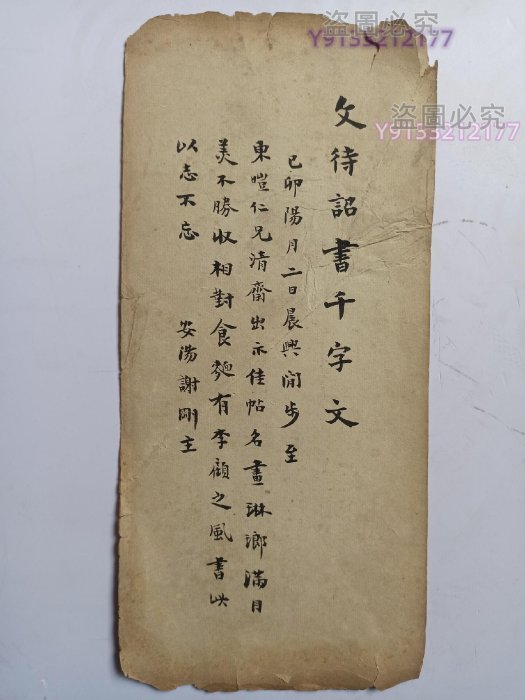 文待詔書千字文
己卯陽月二日晨興閒步至
東暟仁兄清齋出示佳帖名畫琳瑯滿目
美不勝收相對食麵有李顧之風書此
以志不忘 安陽謝剛主
盜圖必究
Y9153212177
盜圖必究
Y9153212177